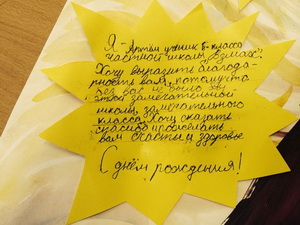 Я - Артём ученик 5-класса
частной школы "Взмах".
Хочу выразить благода-
рность вам, потому что
без вас не было бы
этой замечательной
школы, замечательного
класса. Хочу сказать
спасибо и пожелать
вам счастья и здоровье
С днём рождения!